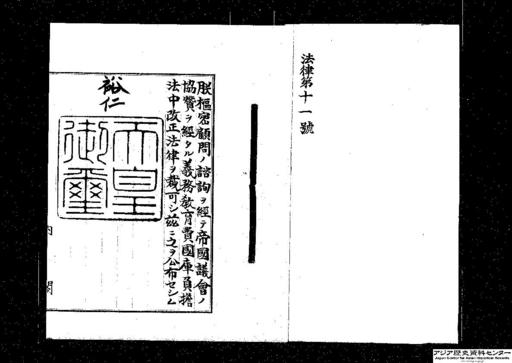 法律第十一號
朕樞密顧問ノ諮詢ヲ經テ帝國議會ノ
協賛ヲ經タル義務教育費國庫負擔
法中改正法律ヲ裁可シ茲ニ之ヲ公布セシム
裕仁
天皇
御璽
内閣
アジア歴史資料センター
Japan Center for Asian Historical Records